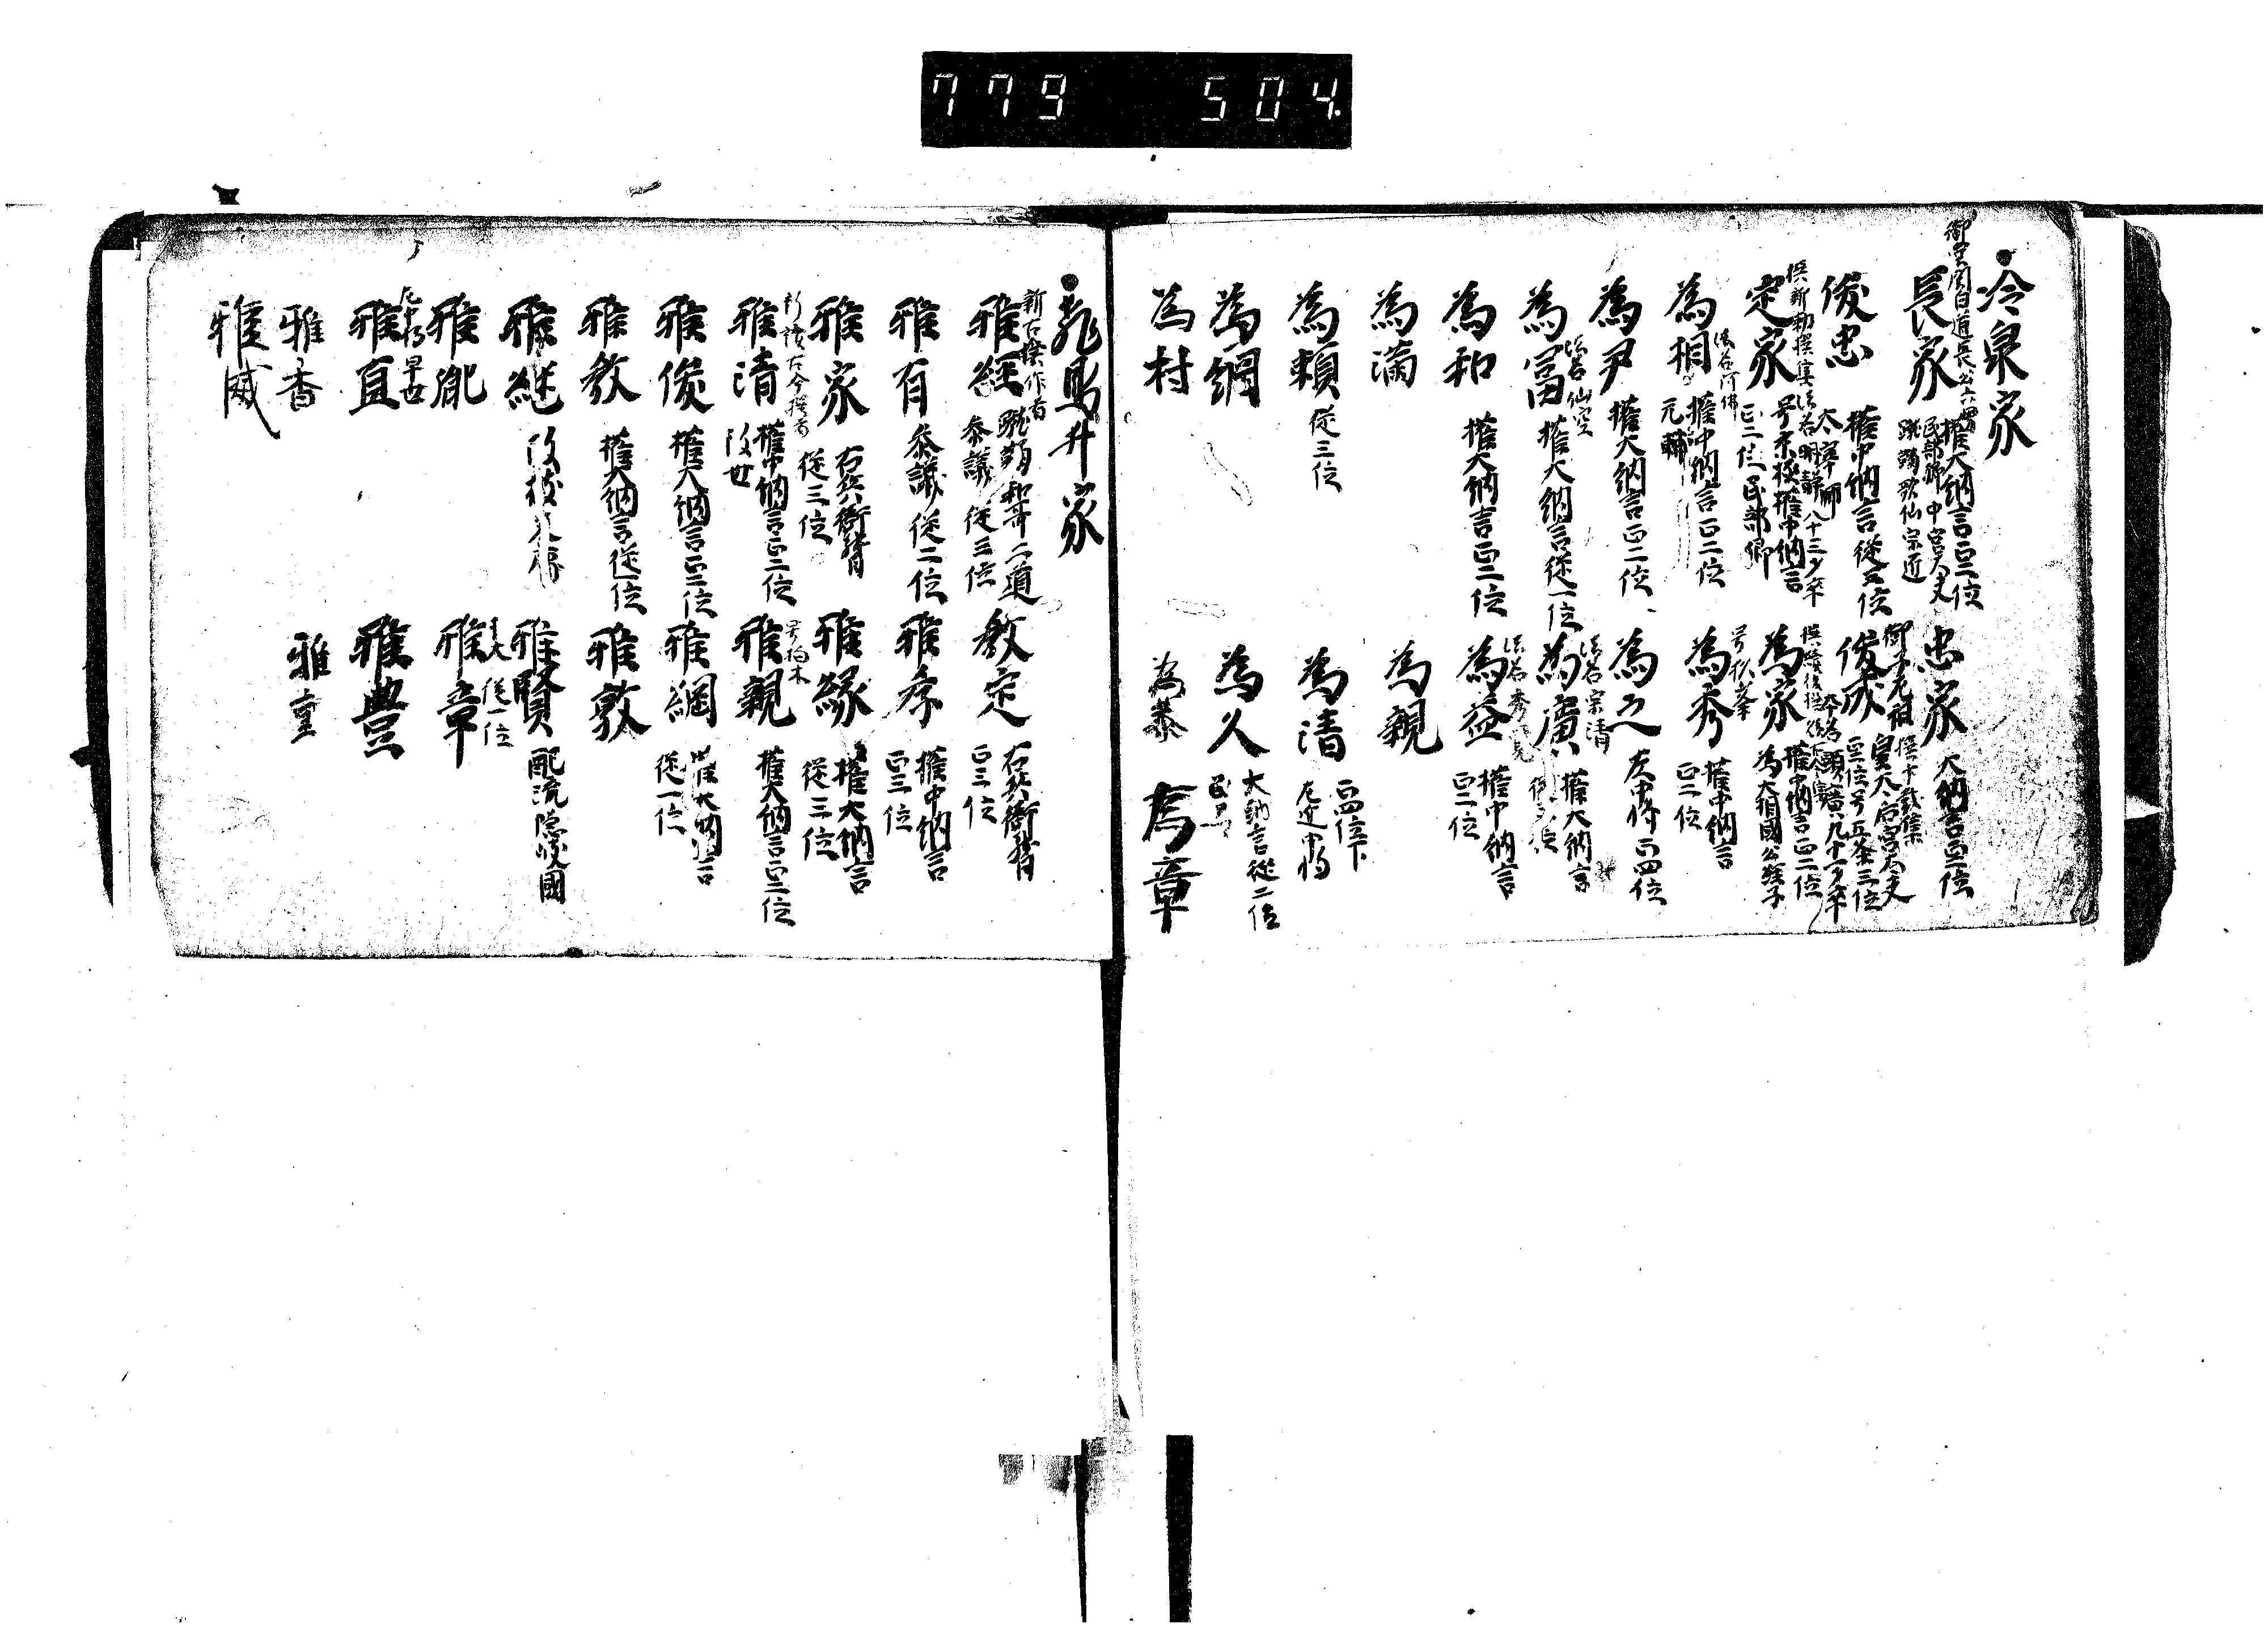 779 504
冷泉家
御堂関白道長公六男
長家
権大納言正二位
民部卿 中宮大夫
蹴鞠歌仙宗匠
忠家
大納言正二位
俊忠
権中納言従三位
太宰帥
御子左祖
撰千載集
俊成
皇太后宮大夫
正三位号五条三位
本名顕廣九十一才卒
撰新勅撰集
法名明静八十三才卒
定家
号京極権中納言
正二位民部卿
撰続後撰
為家
権中納言正二位
為大相國公経子
為相
法名
権中納言正二位
為秀
権中納言
正二位
為尹
権大納言正二位
為之
左中将正四位
為富
法名
権大納言従一位
為廣
法名宗清
権大納言
為和
権大納言正二位
為益
法名秀
権中納言
正二位
為満
為親
為頼
従三位
為清
正四位下
左近中将
為綱
為久
大納言従二位
為村
為泰
為章
飛鳥井家
新古撰作者
雅経
蹴鞠和哥二道
参議従三位
教定
右兵衛督
正三位
雅有
参議従二位
雅孝
権中納言
正三位
雅家
右兵衛督
従三位
雅縁
権大納言
従三位
雅清
権中納言正二位
雅親
号栢木
権大納言正三位
雅俊
権大納言正二位
雅綱
権大納言
従一位
雅教
権大納言従一位
雅敦
雅継
雅賢
配流隠岐國
雅胤
雅章
従一位
雅直
早世
雅豊
雅香
雅重
雅威